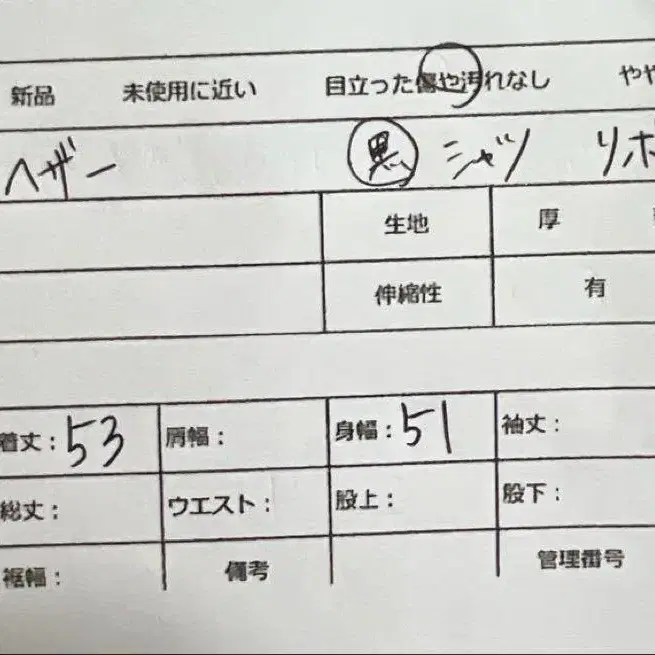 新品 未使用に近い 目立った傷や汚れなし やや
ヘザー 黒 シャツ リボ
生地 厚
伸縮性 有
着丈：53 肩幅： 身幅：51 袖丈：
総丈： ウエスト： 股上： 股下：
裾幅： 備考 管理番号